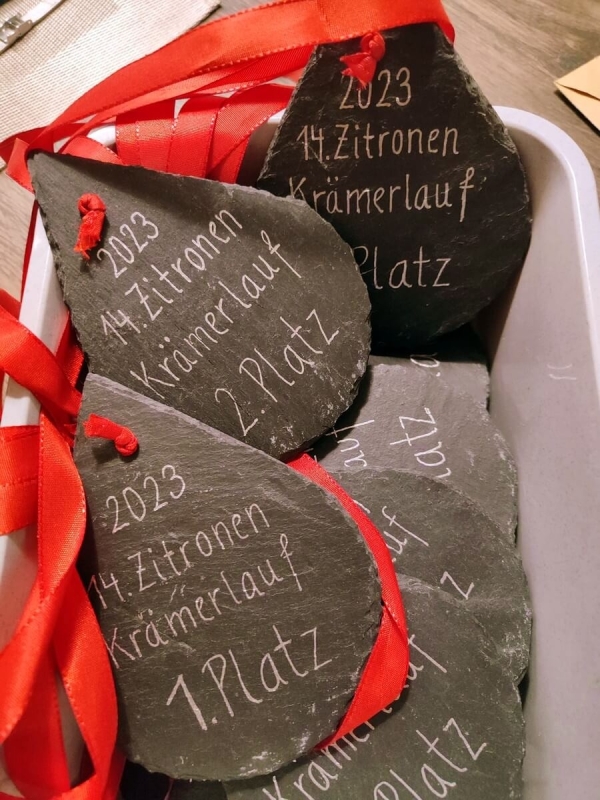 2023
14. Zitronen
Krämerlauf
Platz
2023
14. Zitronen
Krämerlauf
2. Platz
2023
14. Zitronen
Krämerlauf
1. Platz
Krämerlauf
Platz